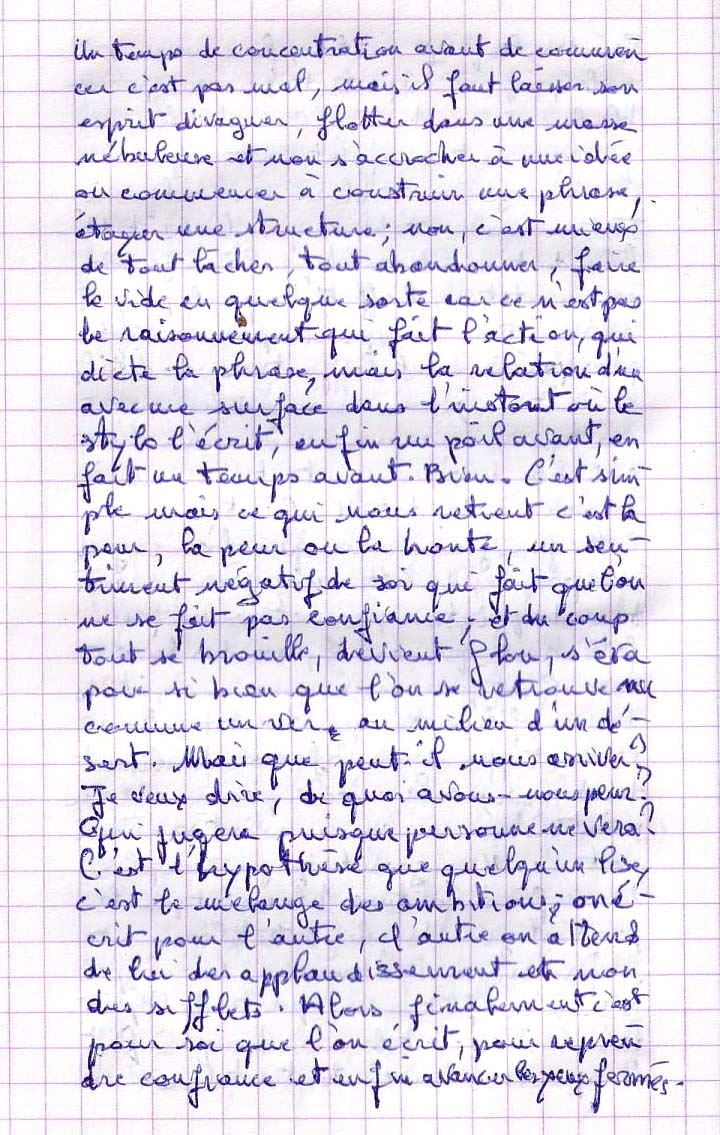 Un temps de concentration avant de commen
cer c'est pas mal, mais il faut laisser son
esprit divaguer, flotter dans une masse
nébuleuse et non s'accrocher à une idée
ou commencer à construire une phrase,
étayer une structure ; non, c'est mieux
de tout lâcher, tout abandonner, faire
le vide en quelque sorte car ce n'est pas
le raisonnement qui fait l'action, qui
dicte la phrase, mais la relation d'un
avec une surface dans l'instant où le
stylo l'écrit, enfin un poil avant, en
fait un temps avant. Bien. C'est sim
ple mais ce qui nous retient c'est la
peur, la peur ou la honte, un sen-
timent négatif de soi qui fait que l'on
ne se fait pas confiance, et du coup
tout se brouille, devient flou, s'éva
pore si bien que l'on se retrouve nu
comme un ver, au milieu d'un dé-
sert. Mais que peut-il nous arriver ?
Je veux dire, de quoi avons-nous peur ?
Qui jugera puisque personne ne verra ?
C'est l'hypothèse que quelqu'un lise,
c'est le mélange des ambitions, on é-
crit pour l'autre, et l'autre on attend
de lui des applaudissement et non
des sifflets. Alors finalement c'est
pour soi que l'on écrit, pour repren
dre confiance et enfin avancer les yeux fermés.